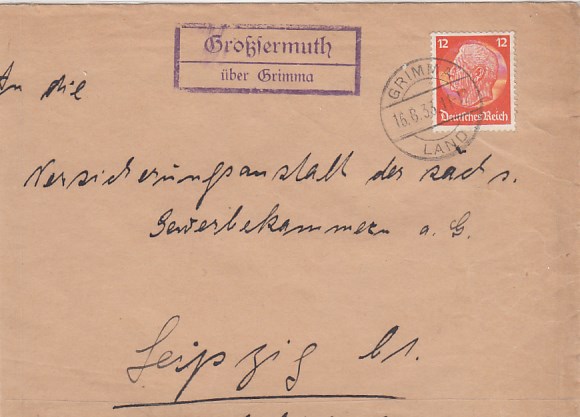 Großsermuth
über Grimma
12 12
Deutsches Reich
GRIMMA
16.6.3
LAND
An die
Versicherungsanstalt der sächs.
Gewerbekammern a. G.
Leipzig C1.